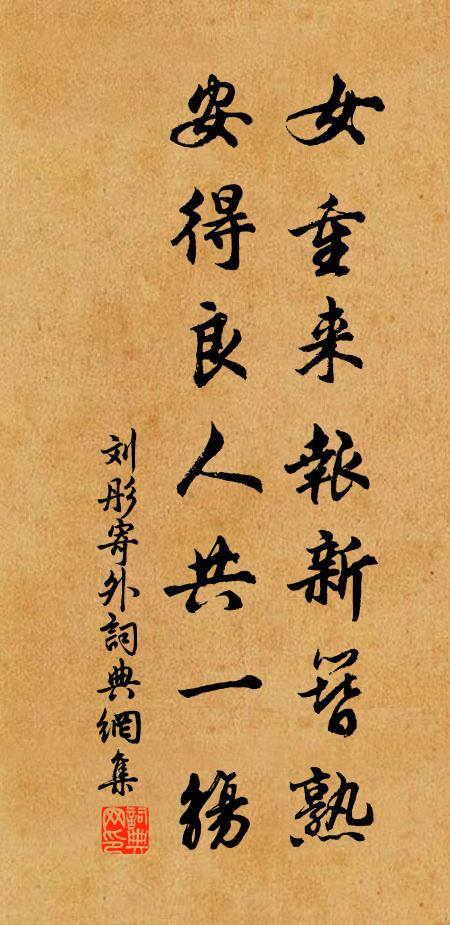 女重来報新熟
安得良人共一觴
刘彤寄外詞典網集
詞典网印